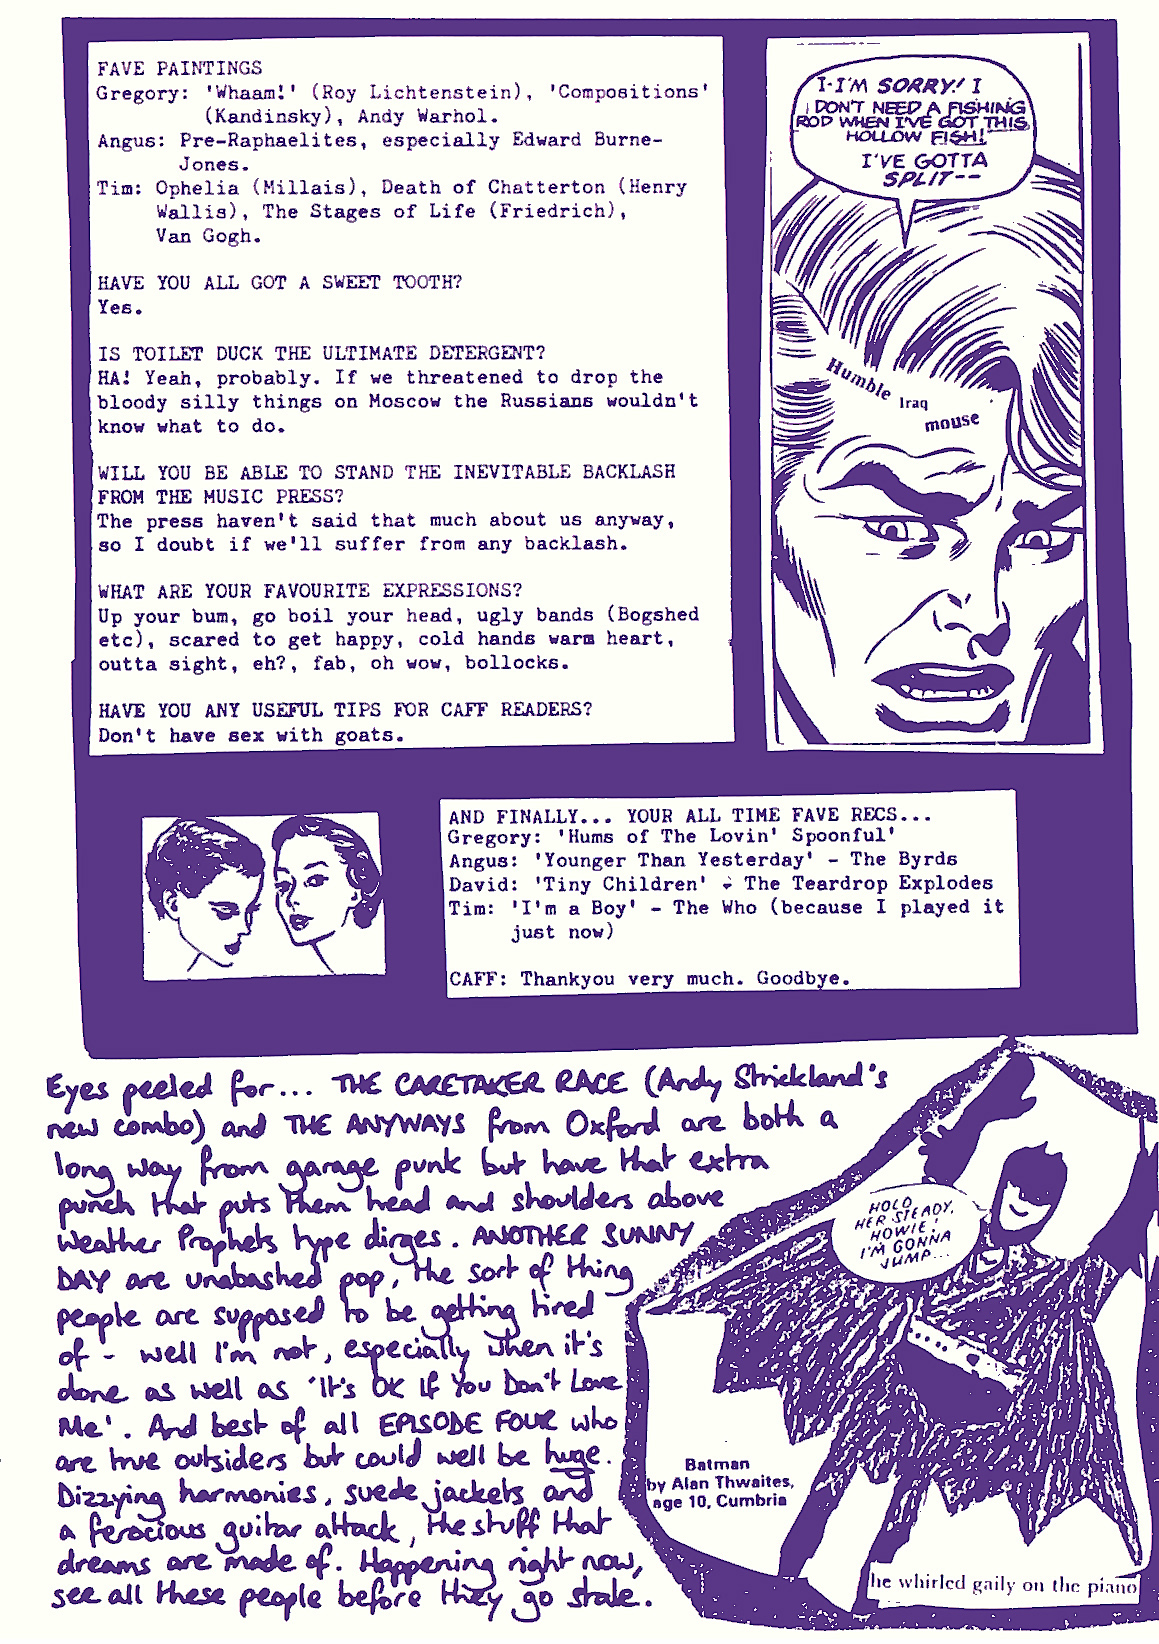 FAVE PAINTINGS
Gregory: 'Whaam!' (Roy Lichtenstein), 'Compositions'
(Kandinsky), Andy Warhol.
Angus: Pre-Raphaelites, especially Edward Burne-
Jones.
Tim: Ophelia (Millais), Death of Chatterton (Henry
Wallis), The Stages of Life (Friedrich),
Van Gogh.
HAVE YOU ALL GOT A SWEET TOOTH?
Yes.
IS TOILET DUCK THE ULTIMATE DETERGENT?
HA! Yeah, probably. If we threatened to drop the
bloody silly things on Moscow the Russians wouldn't
know what to do.
WILL YOU BE ABLE TO STAND THE INEVITABLE BACKLASH
FROM THE MUSIC PRESS?
The press haven't said that much about us anyway,
so I doubt if we'll suffer from any backlash.
WHAT ARE YOUR FAVOURITE EXPRESSIONS?
Up your bum, go boil your head, ugly bands (Bogshed
etc), scared to get happy, cold hands warm heart,
outta sight, eh?, fab, oh wow, bollocks.
HAVE YOU ANY USEFUL TIPS FOR CAFF READERS?
Don't have sex with goats.
I-I'M SORRY! I
DON'T NEED A FISHING
ROD WHEN I'VE GOT THIS
HOLLOW FISH!
I'VE GOTTA
SPLIT--
Humble
Iraq
mouse
AND FINALLY... YOUR ALL TIME FAVE RECS...
Gregory: 'Hums of The Lovin' Spoonful'
Angus: 'Younger Than Yesterday' - The Byrds
David: 'Tiny Children' - The Teardrop Explodes
Tim: 'I'm a Boy' - The Who (because I played it
just now)
CAFF: Thankyou very much. Goodbye.
Eyes peeled for... THE CARETAKER RACE (Andy Strickland's
new combo) and THE ANYWAYS from Oxford are both a
long way from garage punk but have that extra
punch that puts them head and shoulders above
Weather Prophets type dirges. ANOTHER SUNNY
DAY are unabashed pop, the sort of thing
people are supposed to be getting tired
of - well I'm not, especially when it's
done as well as 'It's OK If You Don't Love
Me'. And best of all EPISODE FOUR who
are true outsiders but could well be huge.
Dizzying harmonies, suede jackets and
a ferocious guitar attack, the stuff that
dreams are made of. Happening right now,
see all these people before they go stale.
HOLD
HER STEADY,
HOWIE!
I'M GONNA
JUMP...
Batman
by Alan Thwaites,
age 10, Cumbria
he whirled gaily on the piano